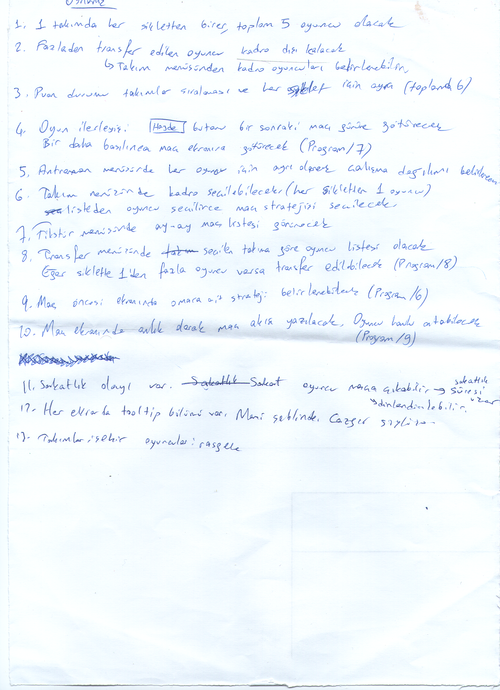 1. 1 takımda her sikletten birer, toplam 5 oyuncu olacak
2. Fazladan transfer edilen oyuncu kadro dışı kalacak
↳ Takım menüsünden kadro oyuncuları belirlenebilir.
3. Puan durumu takımlar sıralaması ve her siklet için ayrı (toplamda 6)
4. Oyun ilerleyişi: Hayde butonu bir sonraki maç gününe götürecek
Bir daha basılınca maç ekranına götürecek (Program/7)
5. Antreman menüsünde her oyuncu için ayrı olarak çalışma dağılımı belirlenecek
6. Takım menüsünde kadro seçilebilecek (her sikletten 1 oyuncu)
listeden oyuncu seçilince maç stratejisi seçilecek.
7. Fikstür menüsünde ay-ay maç listesi görünecek
8. Transfer menüsünde seçilen takıma göre oyuncu listesi olacak
Eğer siklette 1'den fazla oyuncu varsa transfer edilebilecek (Program/8)
9. Maç öncesi ekranında o maça ait strateji belirlenebilecek (Program/6)
10. Maç ekranında anlık olarak maç akışı yazılacak. Oyuncu havlu atabilecek
(Program/9)
11. Sakatlık olayı var. Sakat oyuncu maça çıkabilir → sakatlık süresi uzar
↘ dinlendirilebilir.
12. Her ekranda tooltip bölümü var. Mani şeklinde, Cazgır söylüyor
13. Takımlar: şehir oyuncular: rasgele